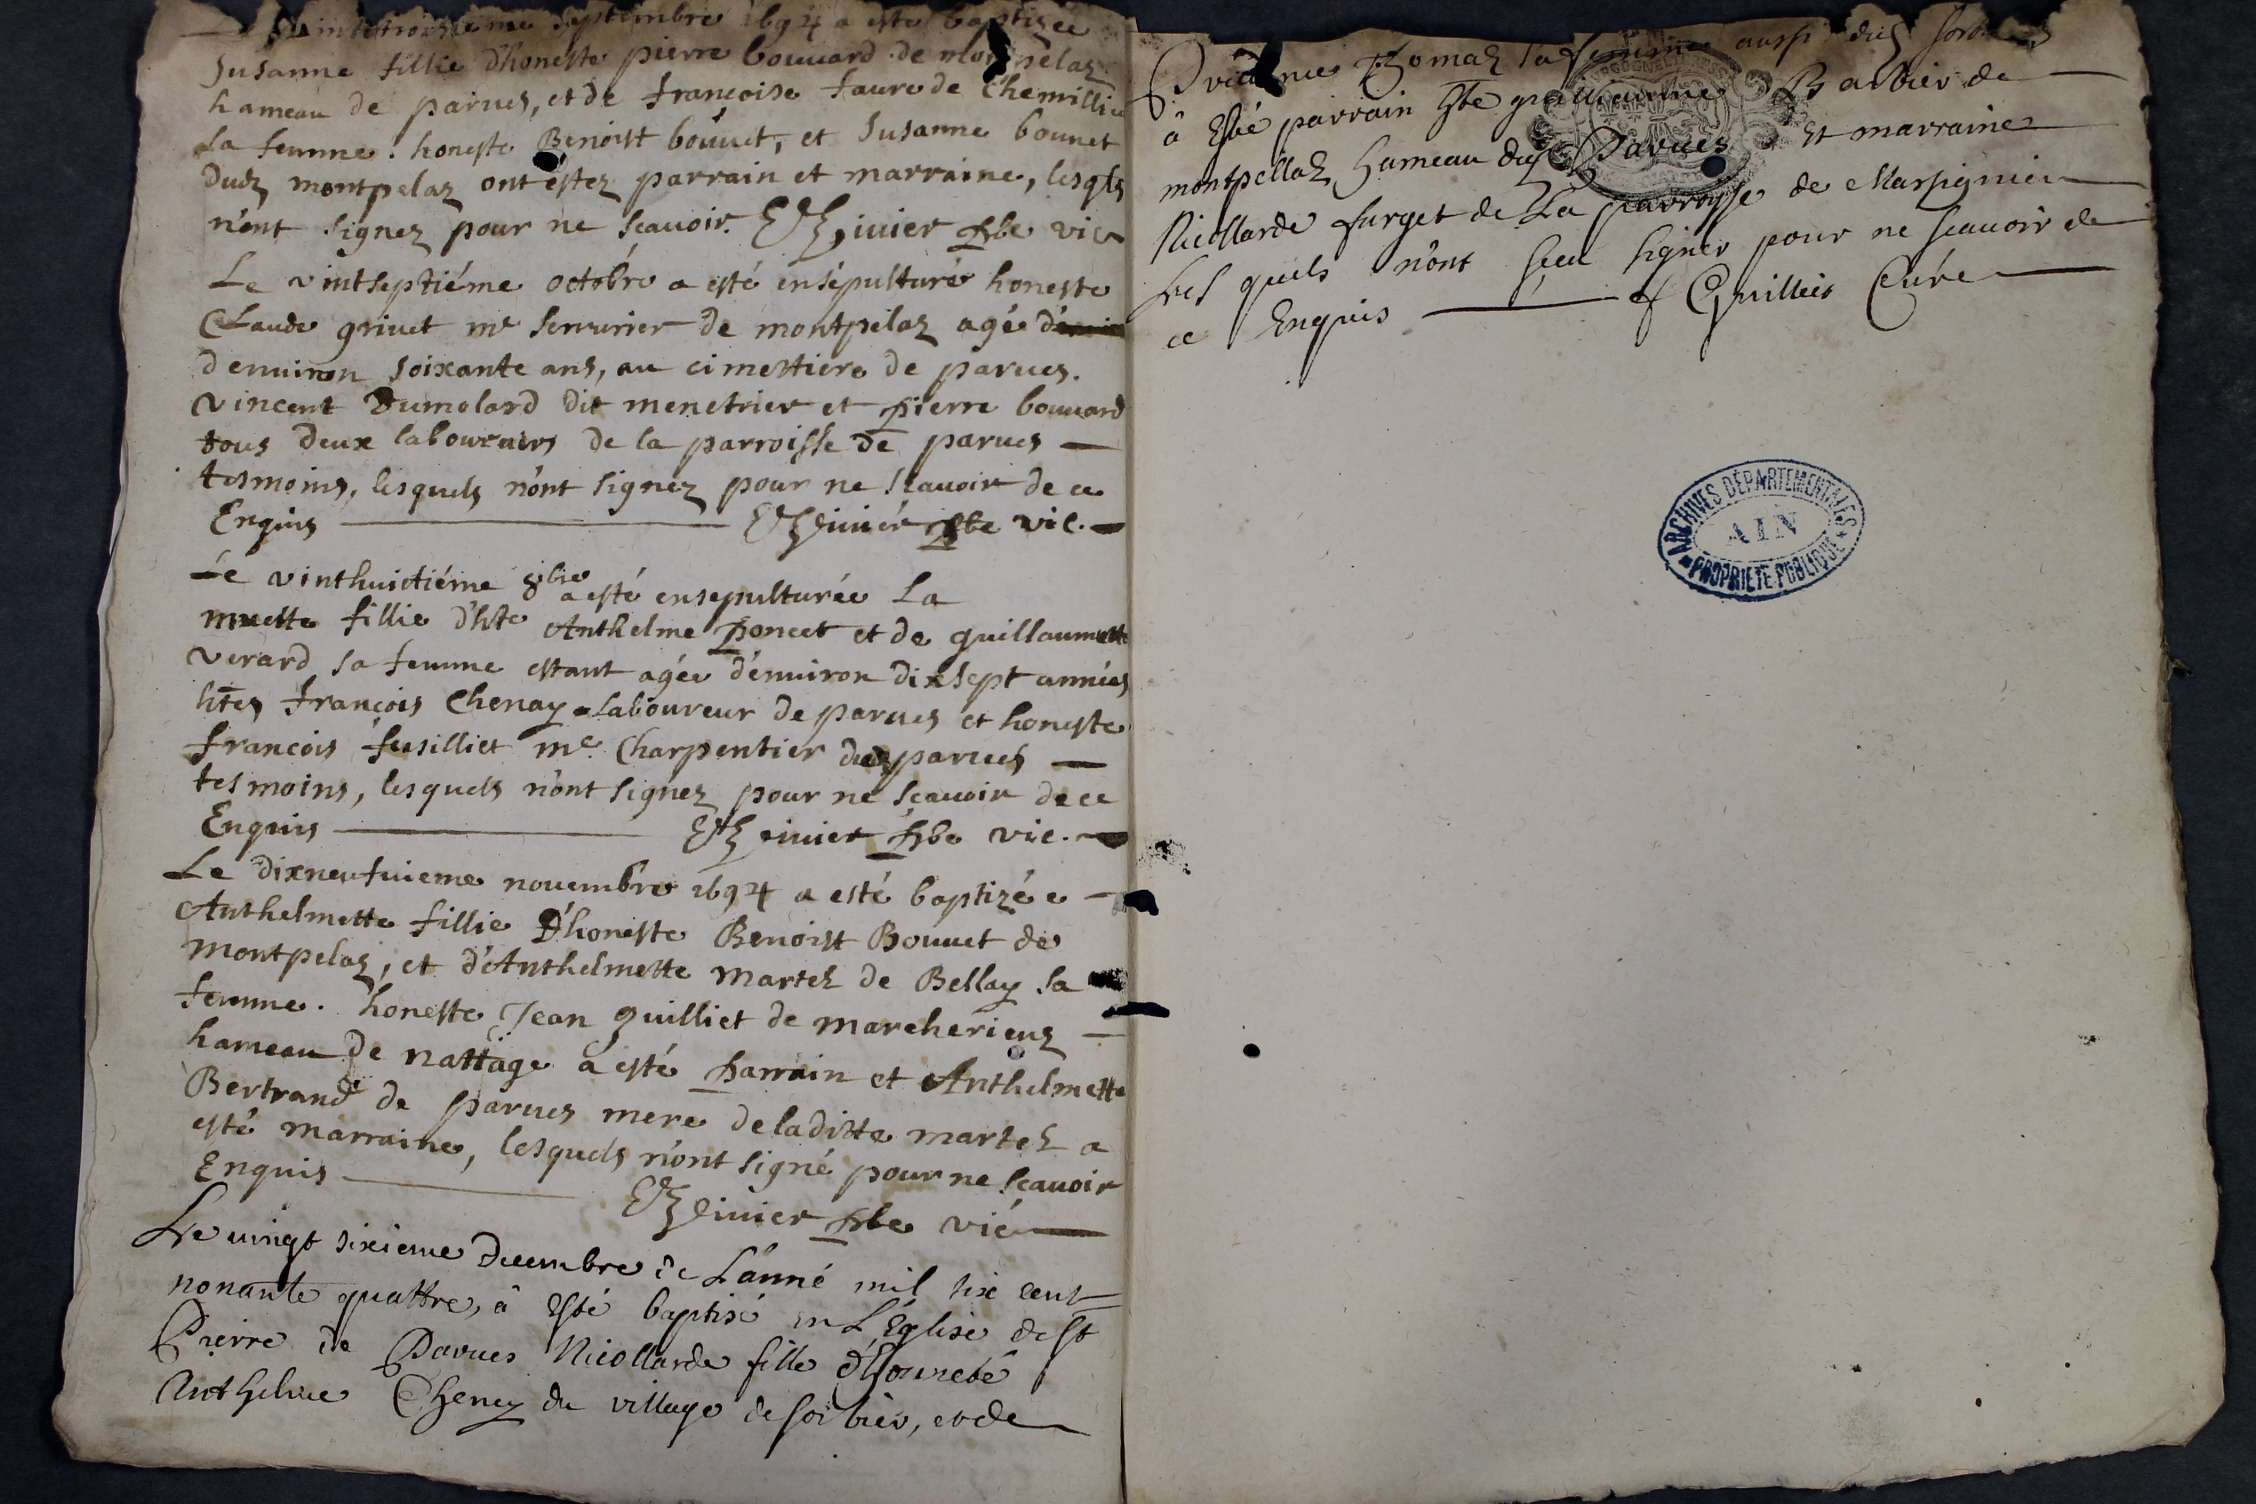 vinttroisieme septembre 1694 a esté baptizée
Susanne fillie d'honeste pierre bouuard de montpelaz
hameau de parues, et de françoise faure de Chemillieu
sa femme. honeste Benoist bouuet, et Susanne bouuet
dudz montpelaz ont éstez parrain et marraine, lesqls
n'ont signez pour ne sçauoir. pbe vic
Le vintseptiéme octobre a esté ensépulturé honeste
Claude griuet me serrurier de montpelaz agé
d'enuiron soixante ans, au cimettiere de parues.
vincent Dumolard dit menetrier et pierre bouuard
tous deux laboureurs de la parroisse de parues
tesmoins, lesquels n'ont signez pour ne sçauoir de ce
Enquis pbe vic.
Le vinthuictiéme 8bre a esté ensepulturée La
muette fillie d'hte Anthelme poncet et de guillaumette
verard sa femme estant agée d'enuiron dixsept années
htes françois Chenay laboureur de parues et honeste
françois fusilliet me. Charpentier dudz parues
tesmoins, lesquels n'ont signez pour ne sçauoir de ce
Enquis pbe vic.
Le dixneufuieme nouembre 1694 a esté baptizée
Anthelmette fillie D'honeste Benoist Bouuet de
montpelaz, et d'Anthelmette martez de Bellay sa
femme. honeste Jean guilliet de marcherieuz
hameau de nattage a esté parrain et Anthelmette
Bertrand de parues mere deladitte martez a
esté marraine, lesquels n'ont signé pour ne sçauoir
Enquis pbe vic
Le uingt sixieme decembre de L'anné mil six cent
nonante quattre, â esté baptisé en L'Églisse de st
Pierre de Parues Nicollarde fille d'honneté
Anthelme Cheney du village de sorbier, et de
Thomaz sa femme aussi dud
â Esté parrain hte Barbier de
montpellaz hameau dud Parues Et marraine
Nicollarde furget de La parroisse de Marsignieu
Les quels n'ont sceu signer pour ne scauoir de
ce Enquis Guilliet Curé
ARCHIVES DÉPARTEMENTALES
AIN
PROPRIÉTÉ PUBLIQUE